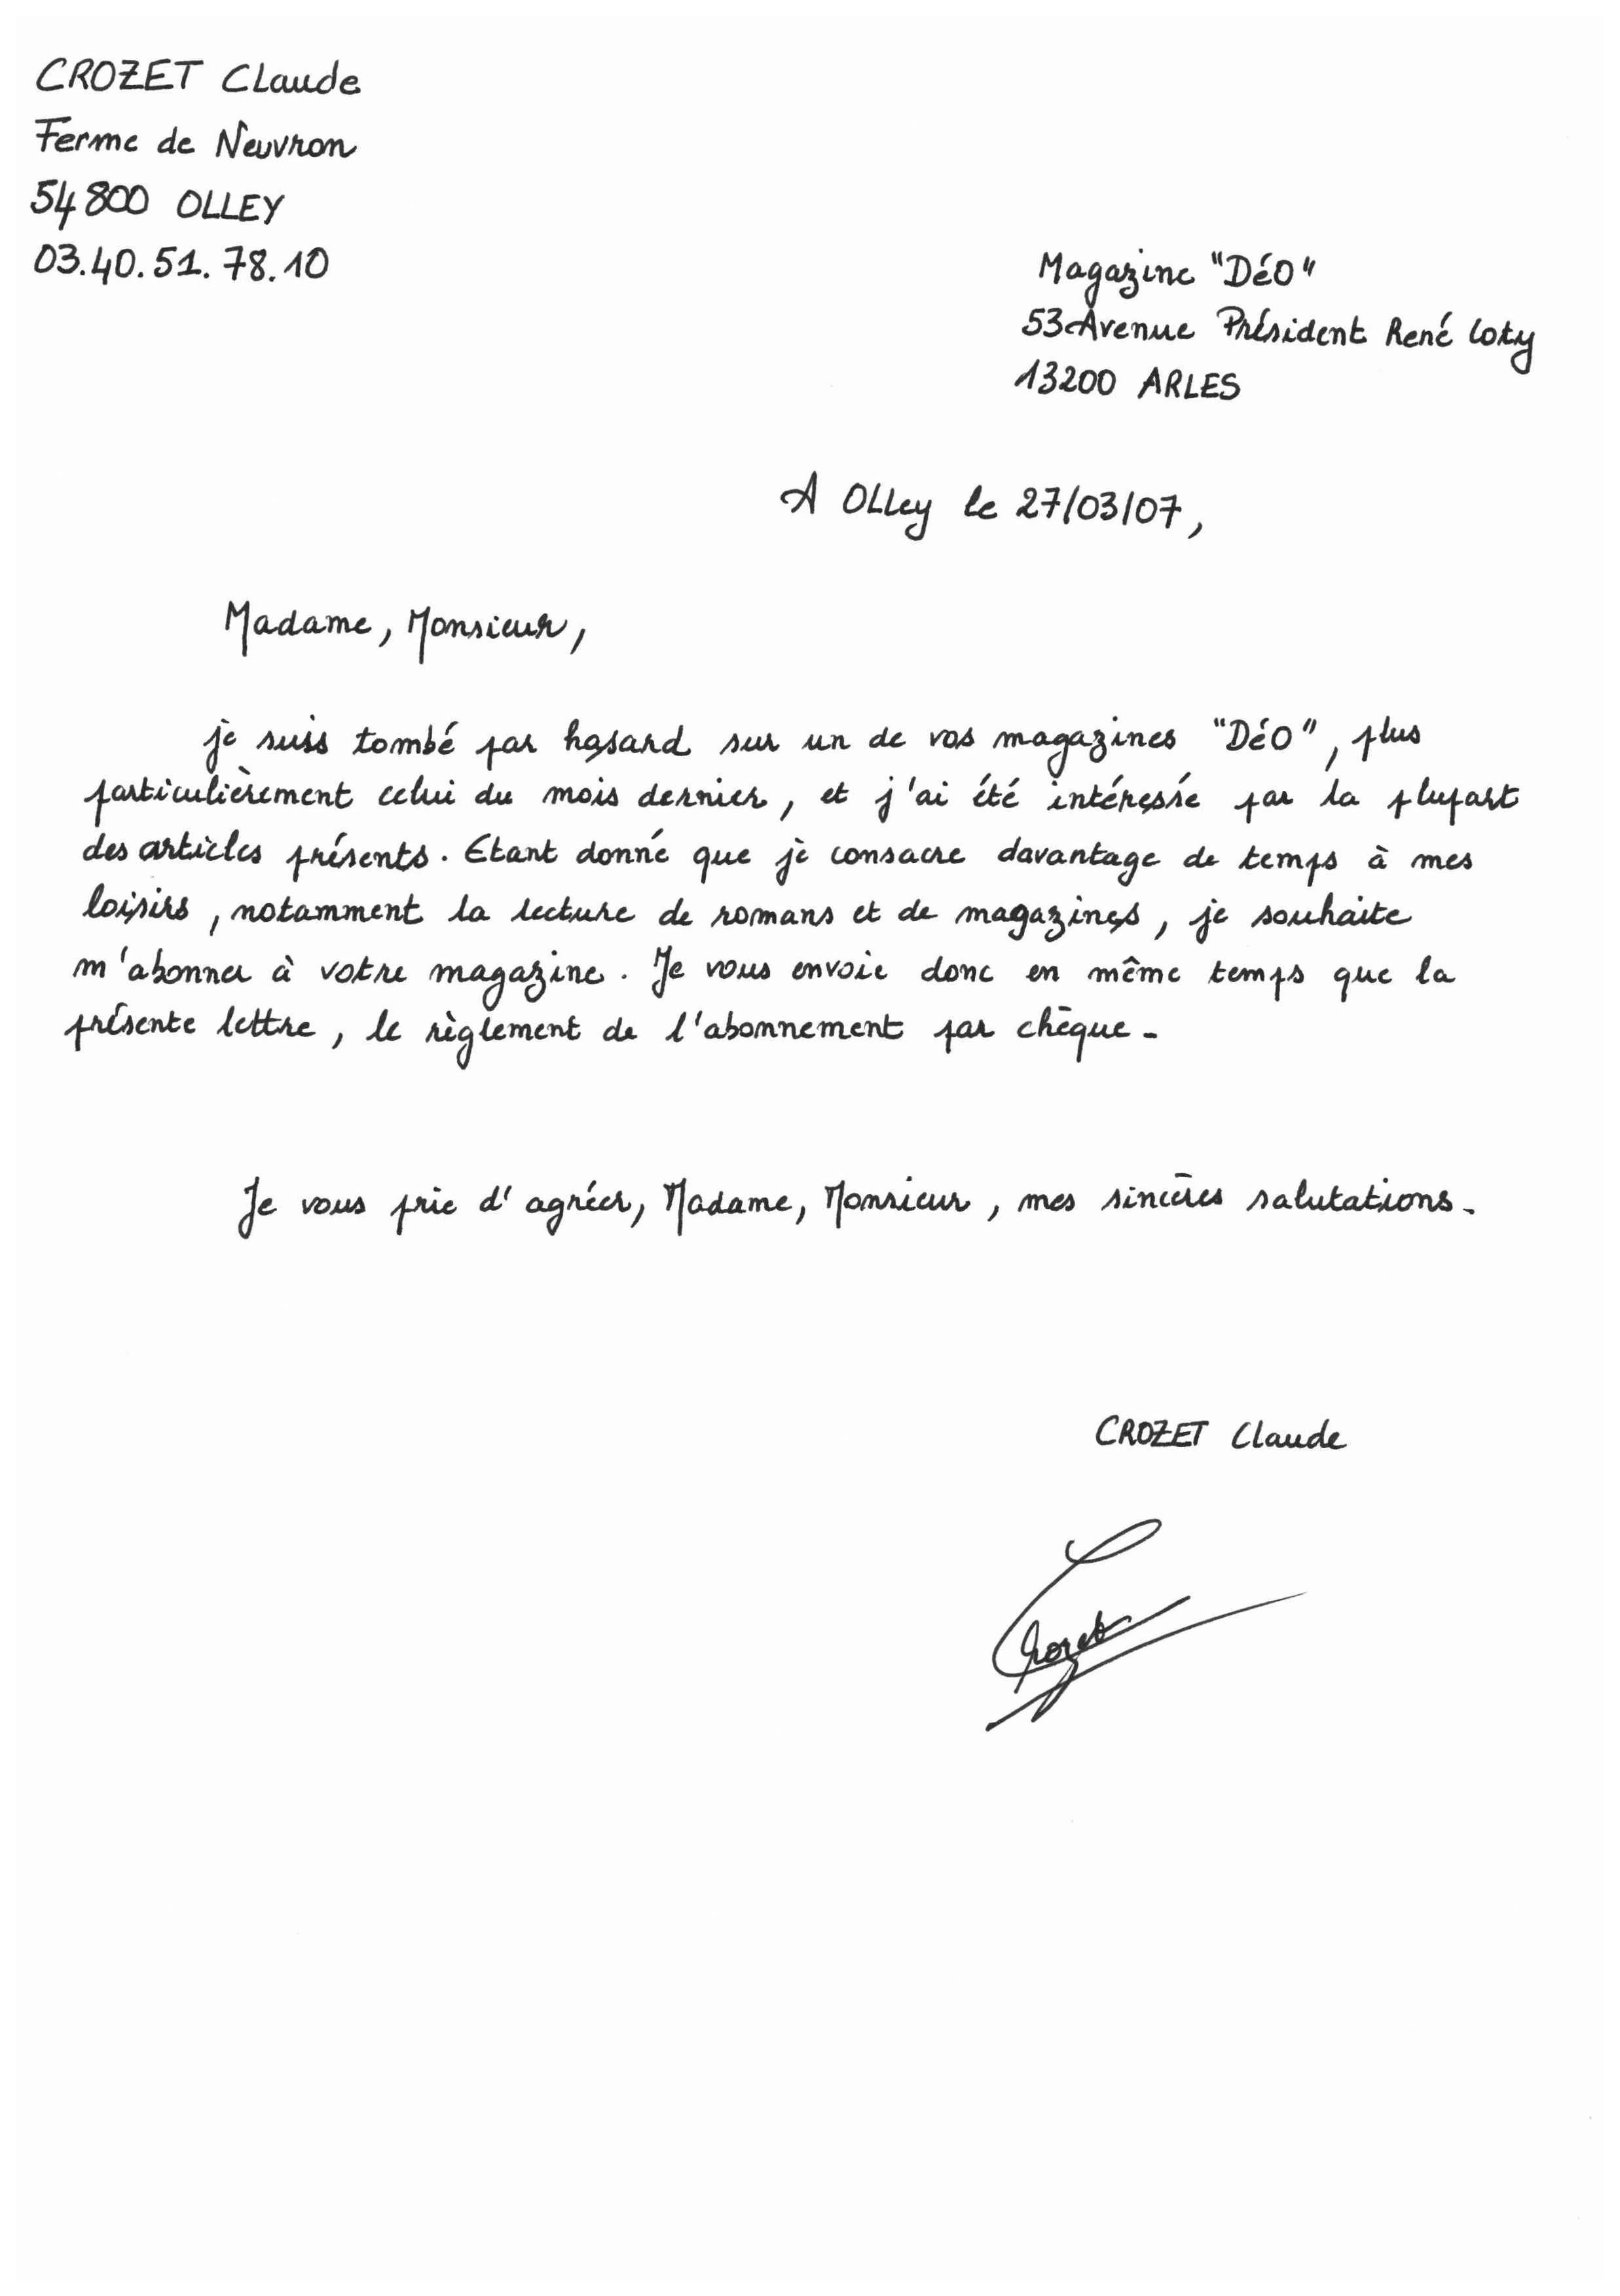 CROZET Claude
Ferme de Neuvron
54800 OLLEY
03.40.51.78.10
Magazine "DéO"
53 Avenue Président René Coty
13200 ARLES
A OLLey le 27/03/07,
Madame, Monsieur,
je suis tombé par hasard sur un de vos magazines "DéO", plus
particulièrement celui du mois dernier, et j'ai été intéressé par la plupart
des articles présents. Etant donné que je consacre davantage de temps à mes
loisirs, notamment la lecture de romans et de magazines, je souhaite
m'abonner à votre magazine. Je vous envoie donc en même temps que la
présente lettre, le règlement de l'abonnement par chèque.
Je vous prie d'agréer, Madame, Monsieur, mes sincères salutations.
CROZET Claude
Crozet